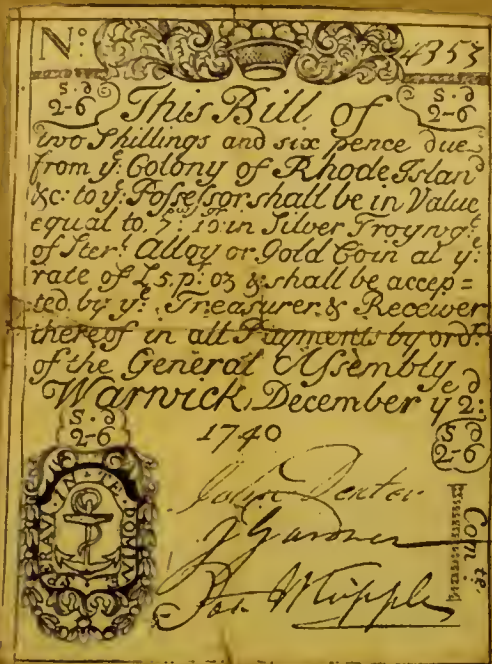 No: 4353
s·d s·d
2-6 2-6
This Bill of
two Shillings and six pence due
from ye Colony of Rhode Island
&c: to ye Possessor shall be in Value
equal to in Silver Troy wgt
of Ster: Alloy or Gold Coin at ye
rate of £5. pr oz & shall be accep=
ted by ye Treasurer & Receiver
thereof in all Payments by ordr
of the General Assembly
Warwick, December ye 2:d
1740
s·d s·d
2-6 2-6
IN·TE·DOMINE SPERAVI
John Dexter
J Gardner
Jos. Whipple
Com tee